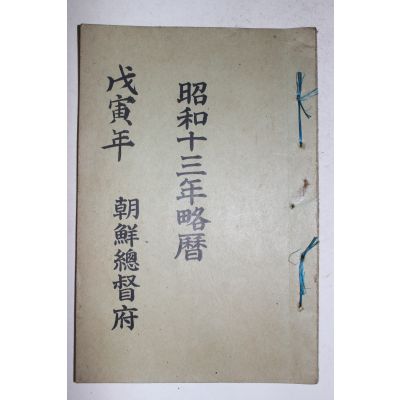 昭和十三年略暦
戊寅年
朝鮮總督府